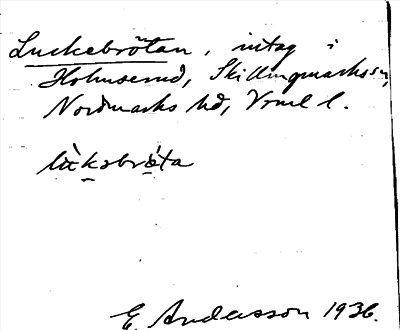 Luckebråtan, intag i
Holmserud, Skillingmarks sn,
Nordmarks hd, Vrml l.
lùkabrå̀ta
E. Andersson 1936.